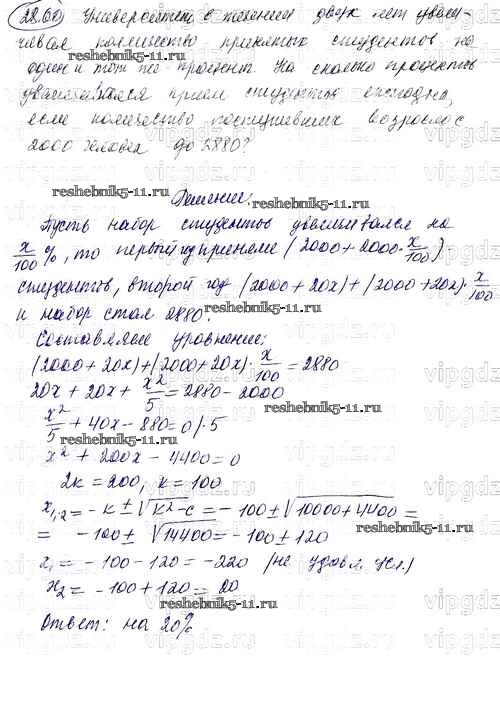 28.60 Университет в течении двух лет увели-
чивал количество принятых студентов на
один и тот же процент. На сколько процентов
увеличивался прием студентов ежегодно,
если количество поступивших возросло с
2000 человек до 2880?
reshebnik5-11.ru
Решение:
Пусть набор студентов увеличивался на
x/100 %, то первый год приняли (2000+2000·x/100)
студентов, второй год (2000+20x)+(2000+20x)·x/100
и набор стал 2880.
Составляем уравнение:
(2000+20x)+(2000+20x)·x/100=2880
20x+20x+x²/5=2880-2000
x²/5+40x-880=0/·5
x²+200x-4400=0
2k=200, k=100
x₁,₂=-k±√k²-c=-100±√10000+4400=
= -100±√14400=-100±120
x₁=-100-120=-220 (не удовл. усл.)
x₂=-100+120=20
Ответ: на 20%
vipgdz.ru